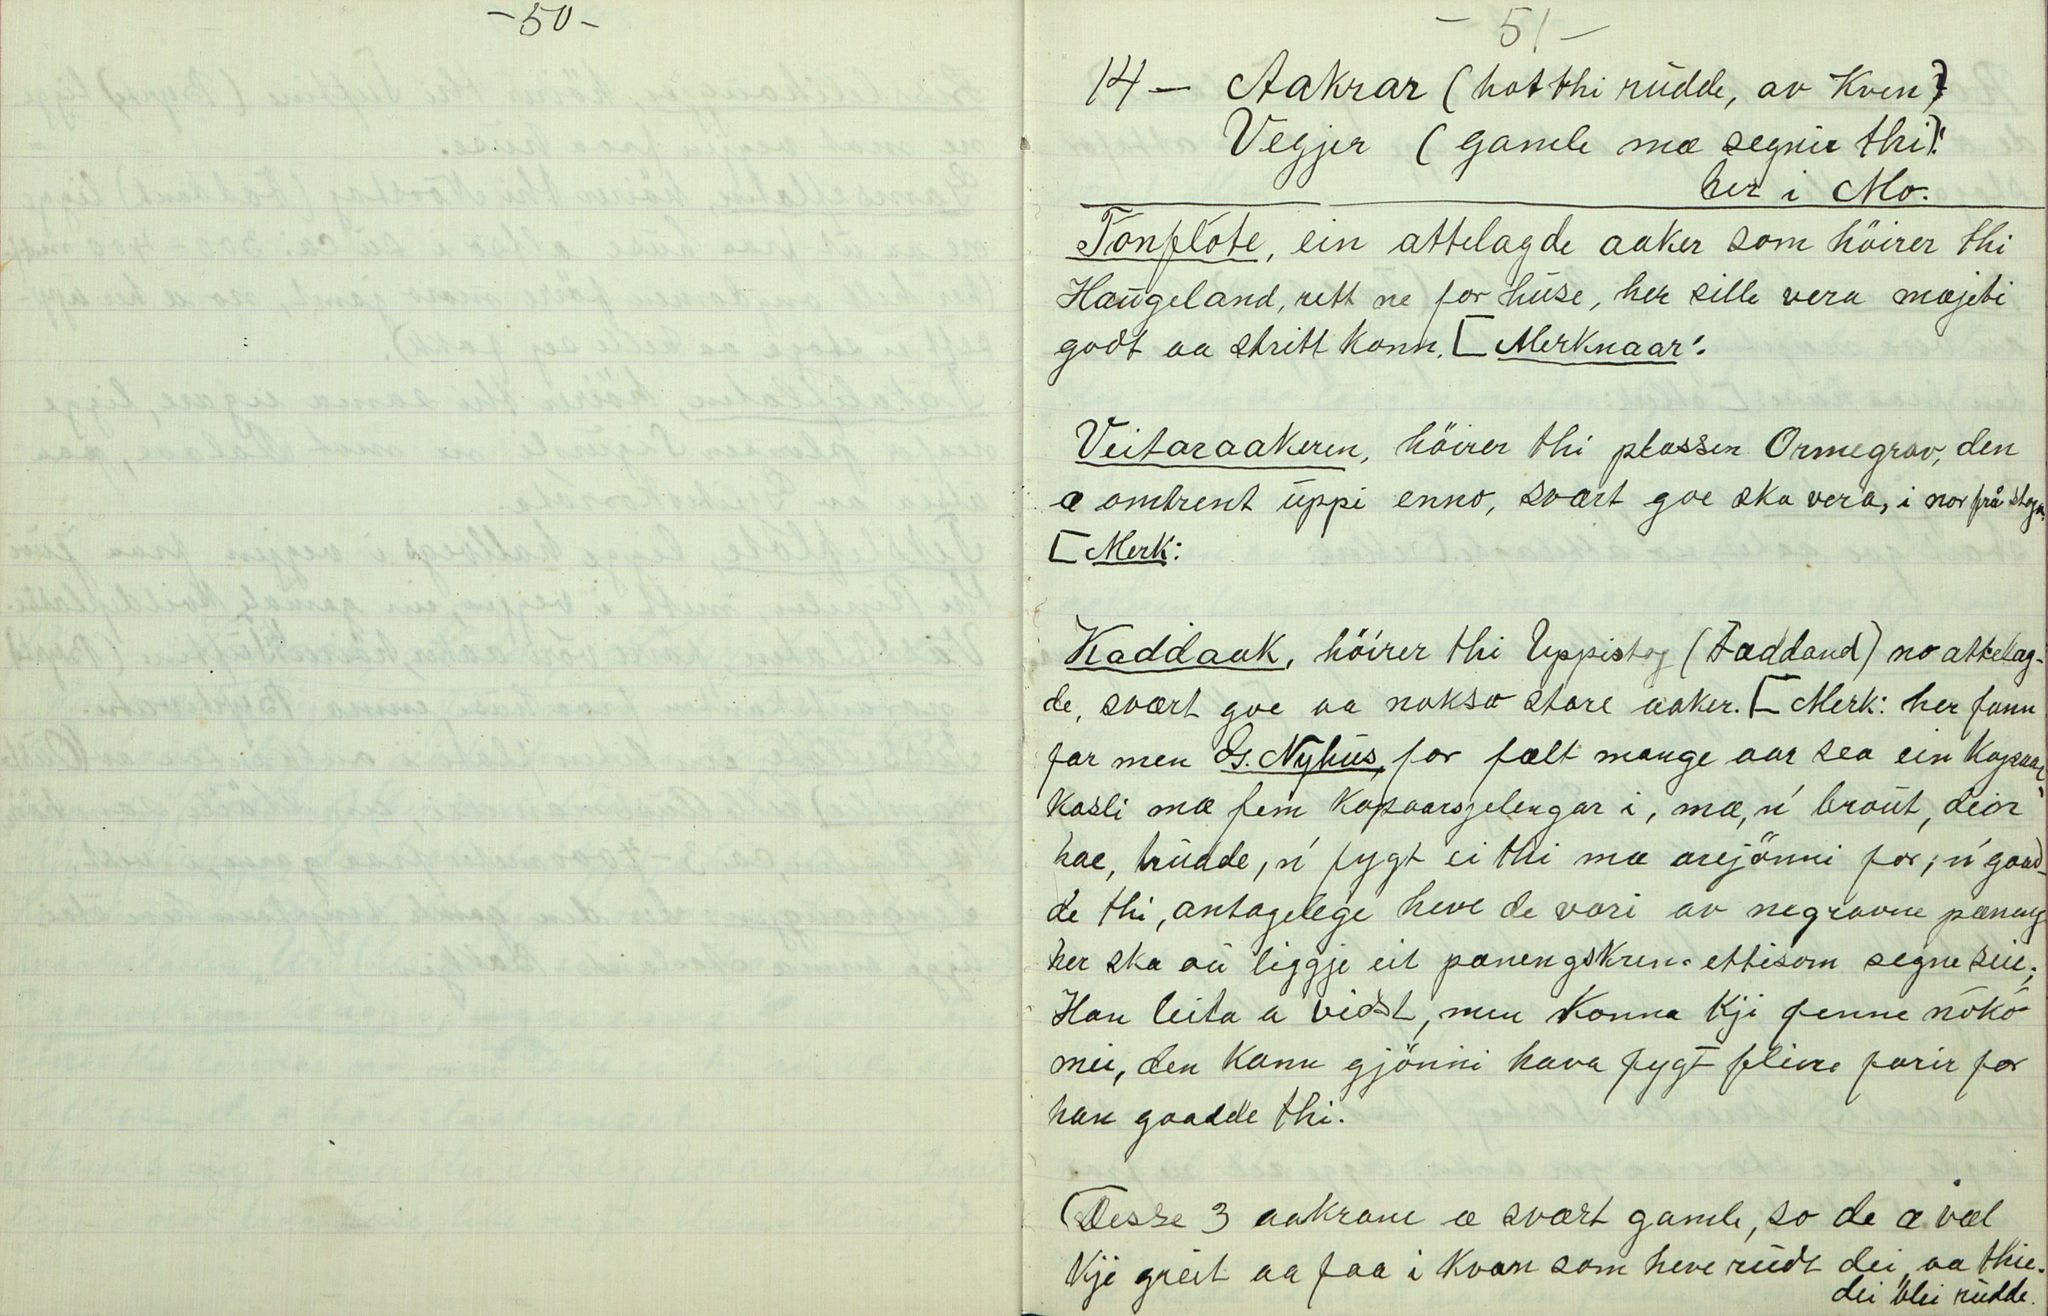 -50-
- 51 -
14 - Aakrar (hot thi rudde, av Kven)
Vegjer (gamle mæ segnir thi):
her i Mo.
Tonflote, ein attelagde aaker som höirer thi
Haugeland, rett ne for huse, her sille vera mæjebi
godt aa stritt konn. [Merknaar:
Veitaraakeren, höirer thi plassen Ormegrav, den
æ omtrent uppi enno, svært goe ska vera, i nor frå stogn.
[Merk:
Kaddaak, höirer thi Uppistog (Faddand) no attelag-
de, svært goe aa nokso store aaker. [Merk: her fann
far men Gs. Nyhus, for fælt mange aar sea ein Kopaar-
kasli mæ fem Kopaarsjelengar i, mæ, n' braut, deir
hae, trudde, n' fygt ei thi mæ arejönni for, n' gaad-
de thi, antagelege heve de vori av negravne pæneng
her ska au liggje eit pænengskrin ettisom segne seie;
Han leita a vidst, men konna kji fenne nökö
mei, den kann gjönni hava fygt fleire farir for
han gaadde thi.
(Desse 3 aakrane æ svært gamle, so de æ væl
kje greit aa faa i kvan som heve rudt dei, aa thie-
dei blei rudde.